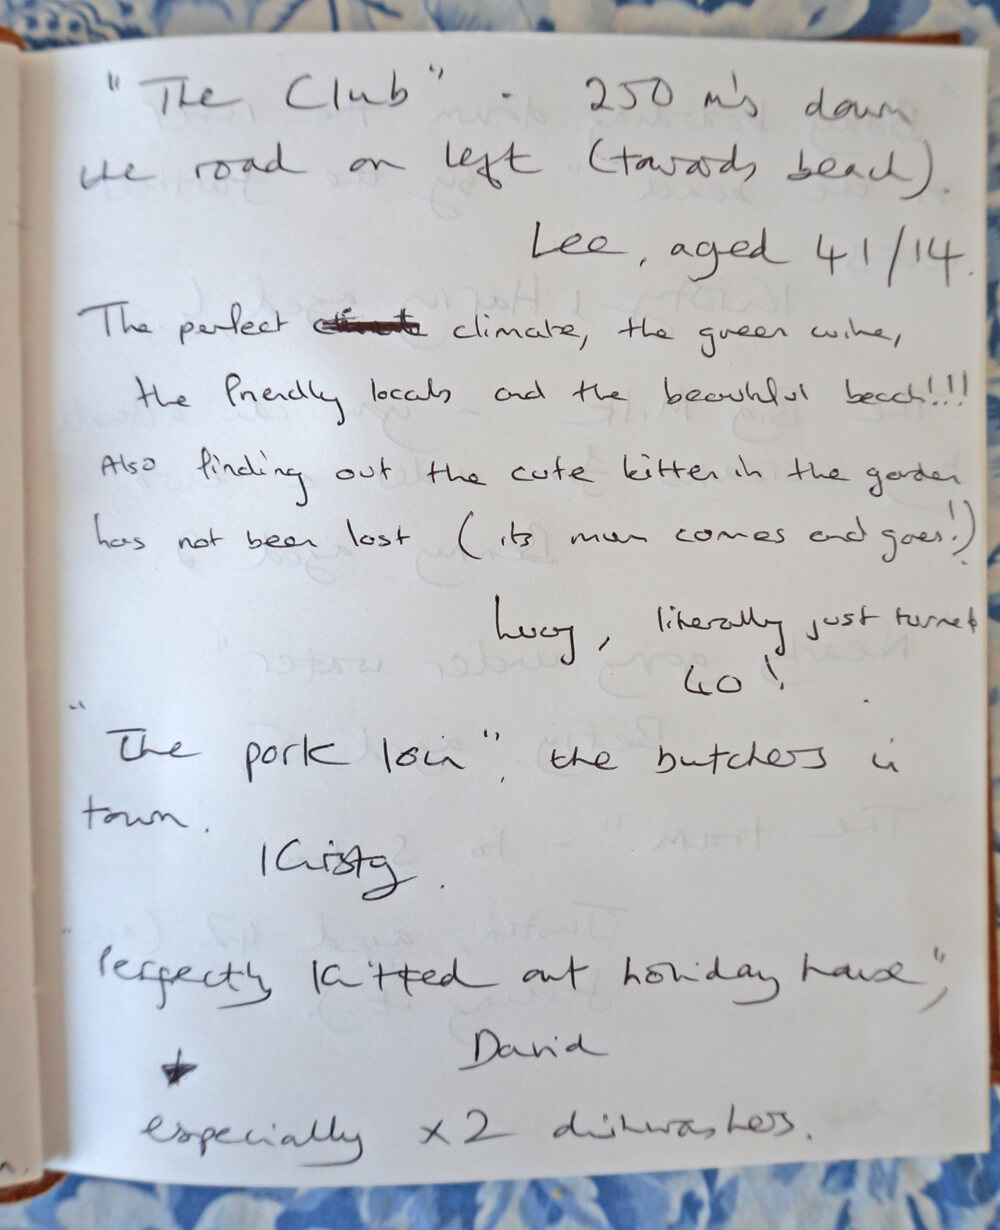 "The Club" - 250 m's down
the road on left (towards beach).
Lee, aged 41/14.
The perfect climate, the green wine,
the friendly locals and the beautiful beach!!!
Also finding out the cute kitten in the garden
has not been lost (its mum comes and goes!)
Lucy, literally just turned
40!
"The pork loin", the butchers in
town.
Kirsty.
"Perfectly kitted out holiday house",
David
especially x2 dishwashers.